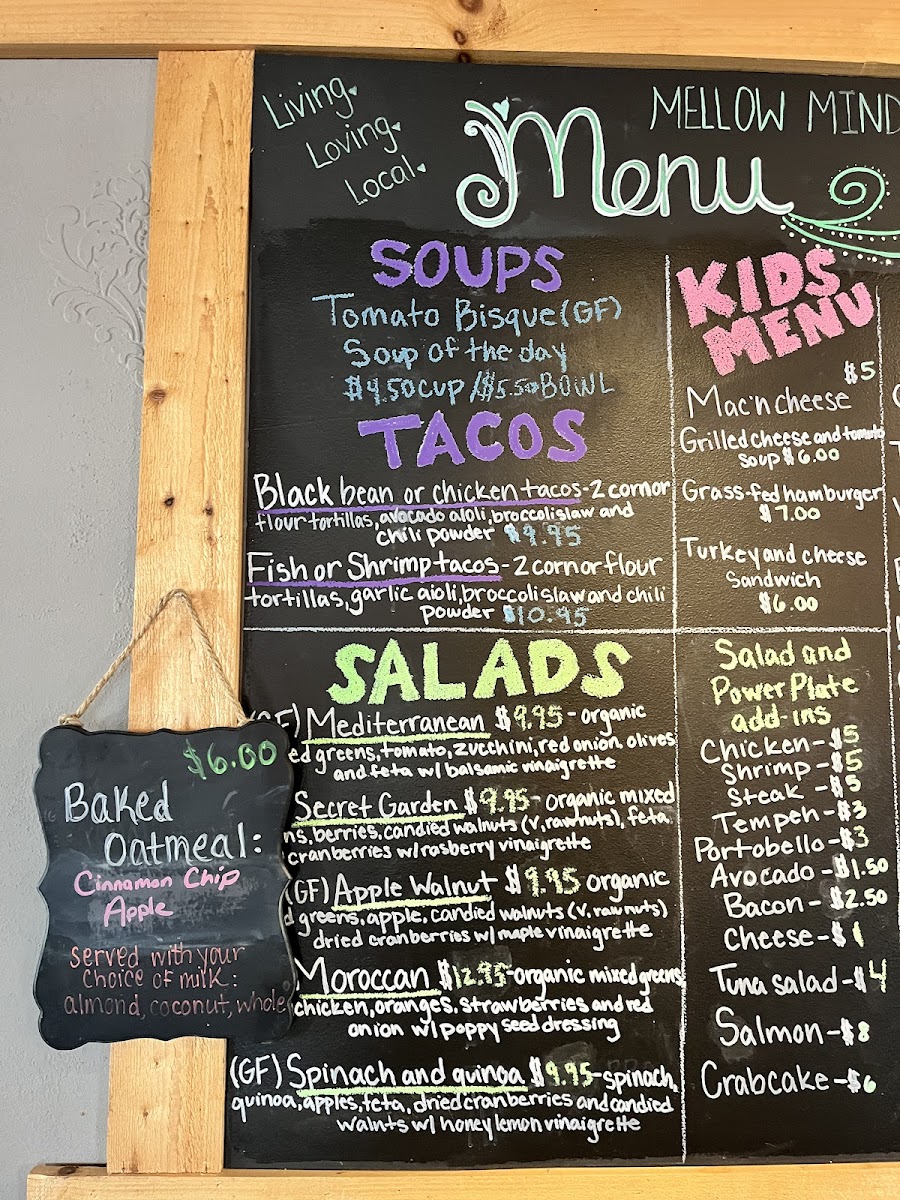 Living
Loving
Local
MELLOW MIND
Menu
SOUPS
Tomato Bisque (GF)
Soup of the day
$4.50 CUP / $5.50 BOWL
TACOS
Black bean or chicken tacos - 2 corn or
flour tortillas, avocado aioli, broccoli slaw and
chili powder $9.95
Fish or Shrimp tacos - 2 corn or flour
tortillas, garlic aioli, broccoli slaw and chili
powder $10.95
SALADS
Mediterranean $9.95 - organic
greens, tomato, zucchini, red onion, olives
and feta w/ balsamic vinaigrette
Secret Garden $9.95 - organic mixed
berries, candied walnuts (v, raw nuts), feta,
cranberries w/ rasberry vinaigrette
(GF) Apple Walnut $9.95 organic
greens, apple, candied walnuts (v, raw nuts)
dried cranberries w/ maple vinaigrette
Moroccan $12.95 - organic mixed greens
chicken, oranges, strawberries and red
onion w/ poppy seed dressing
(GF) Spinach and quinoa $9.95 - spinach,
quinoa, apples, feta, dried cranberries and candied
walnts w/ honey lemon vinaigrette
KIDS
MENU
$5
Mac'n cheese
Grilled cheese and tomato
soup $6.00
Grass-fed hamburger
$7.00
Turkey and cheese
Sandwich
$6.00
Salad and
Power Plate
add-ins
Chicken - $5
Shrimp - $5
Steak - $5
Tempeh - $3
Portobello - $3
Avocado - $1.50
Bacon - $2.50
Cheese - $1
Tuna salad - $4
Salmon - $8
Crabcake - $6
$6.00
Baked
Oatmeal:
Cinnamon Chip
Apple
served with your
choice of milk:
almond, coconut, whole